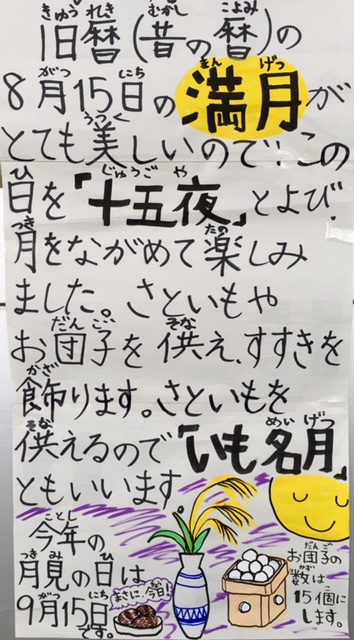 旧暦(昔の暦)の
8月15日の満月が
とても美しいので、この
日を「十五夜」とよび、
月をながめて楽しみ
ました。さといもや
お団子を供え、すすきを
飾ります。さといもを
供えるので「いも名月」
ともいいます。
今年の
月見の日は
9月15日
です。
まさに、今日!
お団子の
数は
15個に
します。